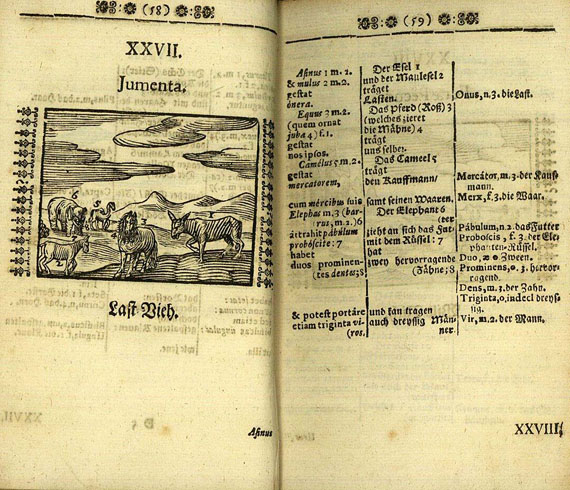 (58)
XXVII.
Jumenta.
6 5
3 1
2
Last-Vieh.
Asinus
(59)
Asinus 1 m. 2.
& mulus 2 m. 2.
gestat
ónera.
Equus 3 m. 2.
(quem ornat
juba 4) f. 1.
gestat
nos ipsos.
Camélus 5 m. 2.
gestat
mercatorem,
cum mércibus suis
Elephas m. 3 (bar-
rus, m. 2.) 6
áttrahit pábulum
proboscide: 7
habet
duos prominen-
tes dentes; 8
& potest portáre
etiam triginta vi-
ros.
Der Esel 1
und der Maulesel 2
träget
Lasten.
Das Pferd (Roß) 3
(welches zieret
die Mähne) 4
trägt
uns selber.
Das Cameel 5
trägt
den Kauffmann/
samt seinen Waaren.
Der Elephant 6
zieht an sich das Fut-
ter
mit dem Rüssel: 7
hat
zwey hervorragende
Zähne; 8
und kan tragen
auch dreyssig Män-
ner.
Onus, n. 3. die Last.
Mercátor, m. 3. der Kauf-
mann.
Merx, f. 3. die Waar.
Pábulum, n. 2. das Futter
Proboscis, f. 3. der Ele-
phanten-Rüssel.
Duo, æ o Zween.
Prominens, o. 3. hervor-
ragend.
Dens, m. 3. der Zahn.
Triginta, o. indecl. dreys-
sig.
Vir, m. 2. der Mann.
XXVIII.